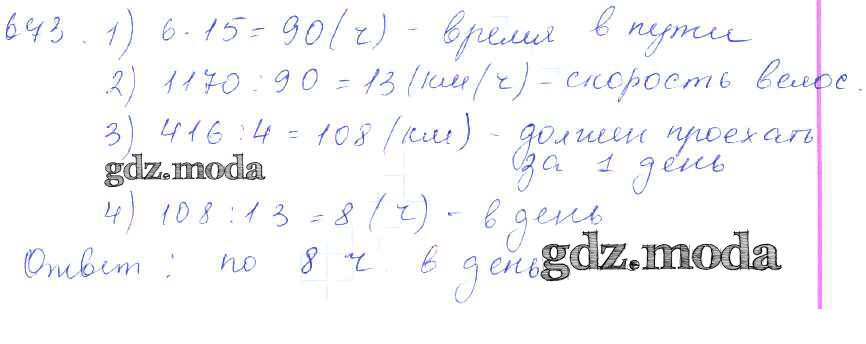 643. 1) 6 · 15 = 90 (ч) - время в пути
2) 1170 : 90 = 13 (км/ч) - скорость велос.
3) 416 : 4 = 108 (км) - должен проехать
за 1 день
gdz.moda
4) 108 : 13 = 8 (ч) - в день
Ответ: по 8 ч в день
gdz.moda